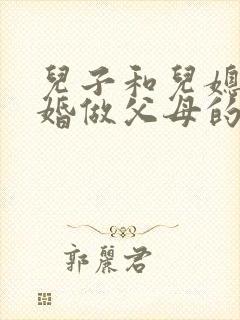 兒子和兒媳
婚做父母的
郭麗君